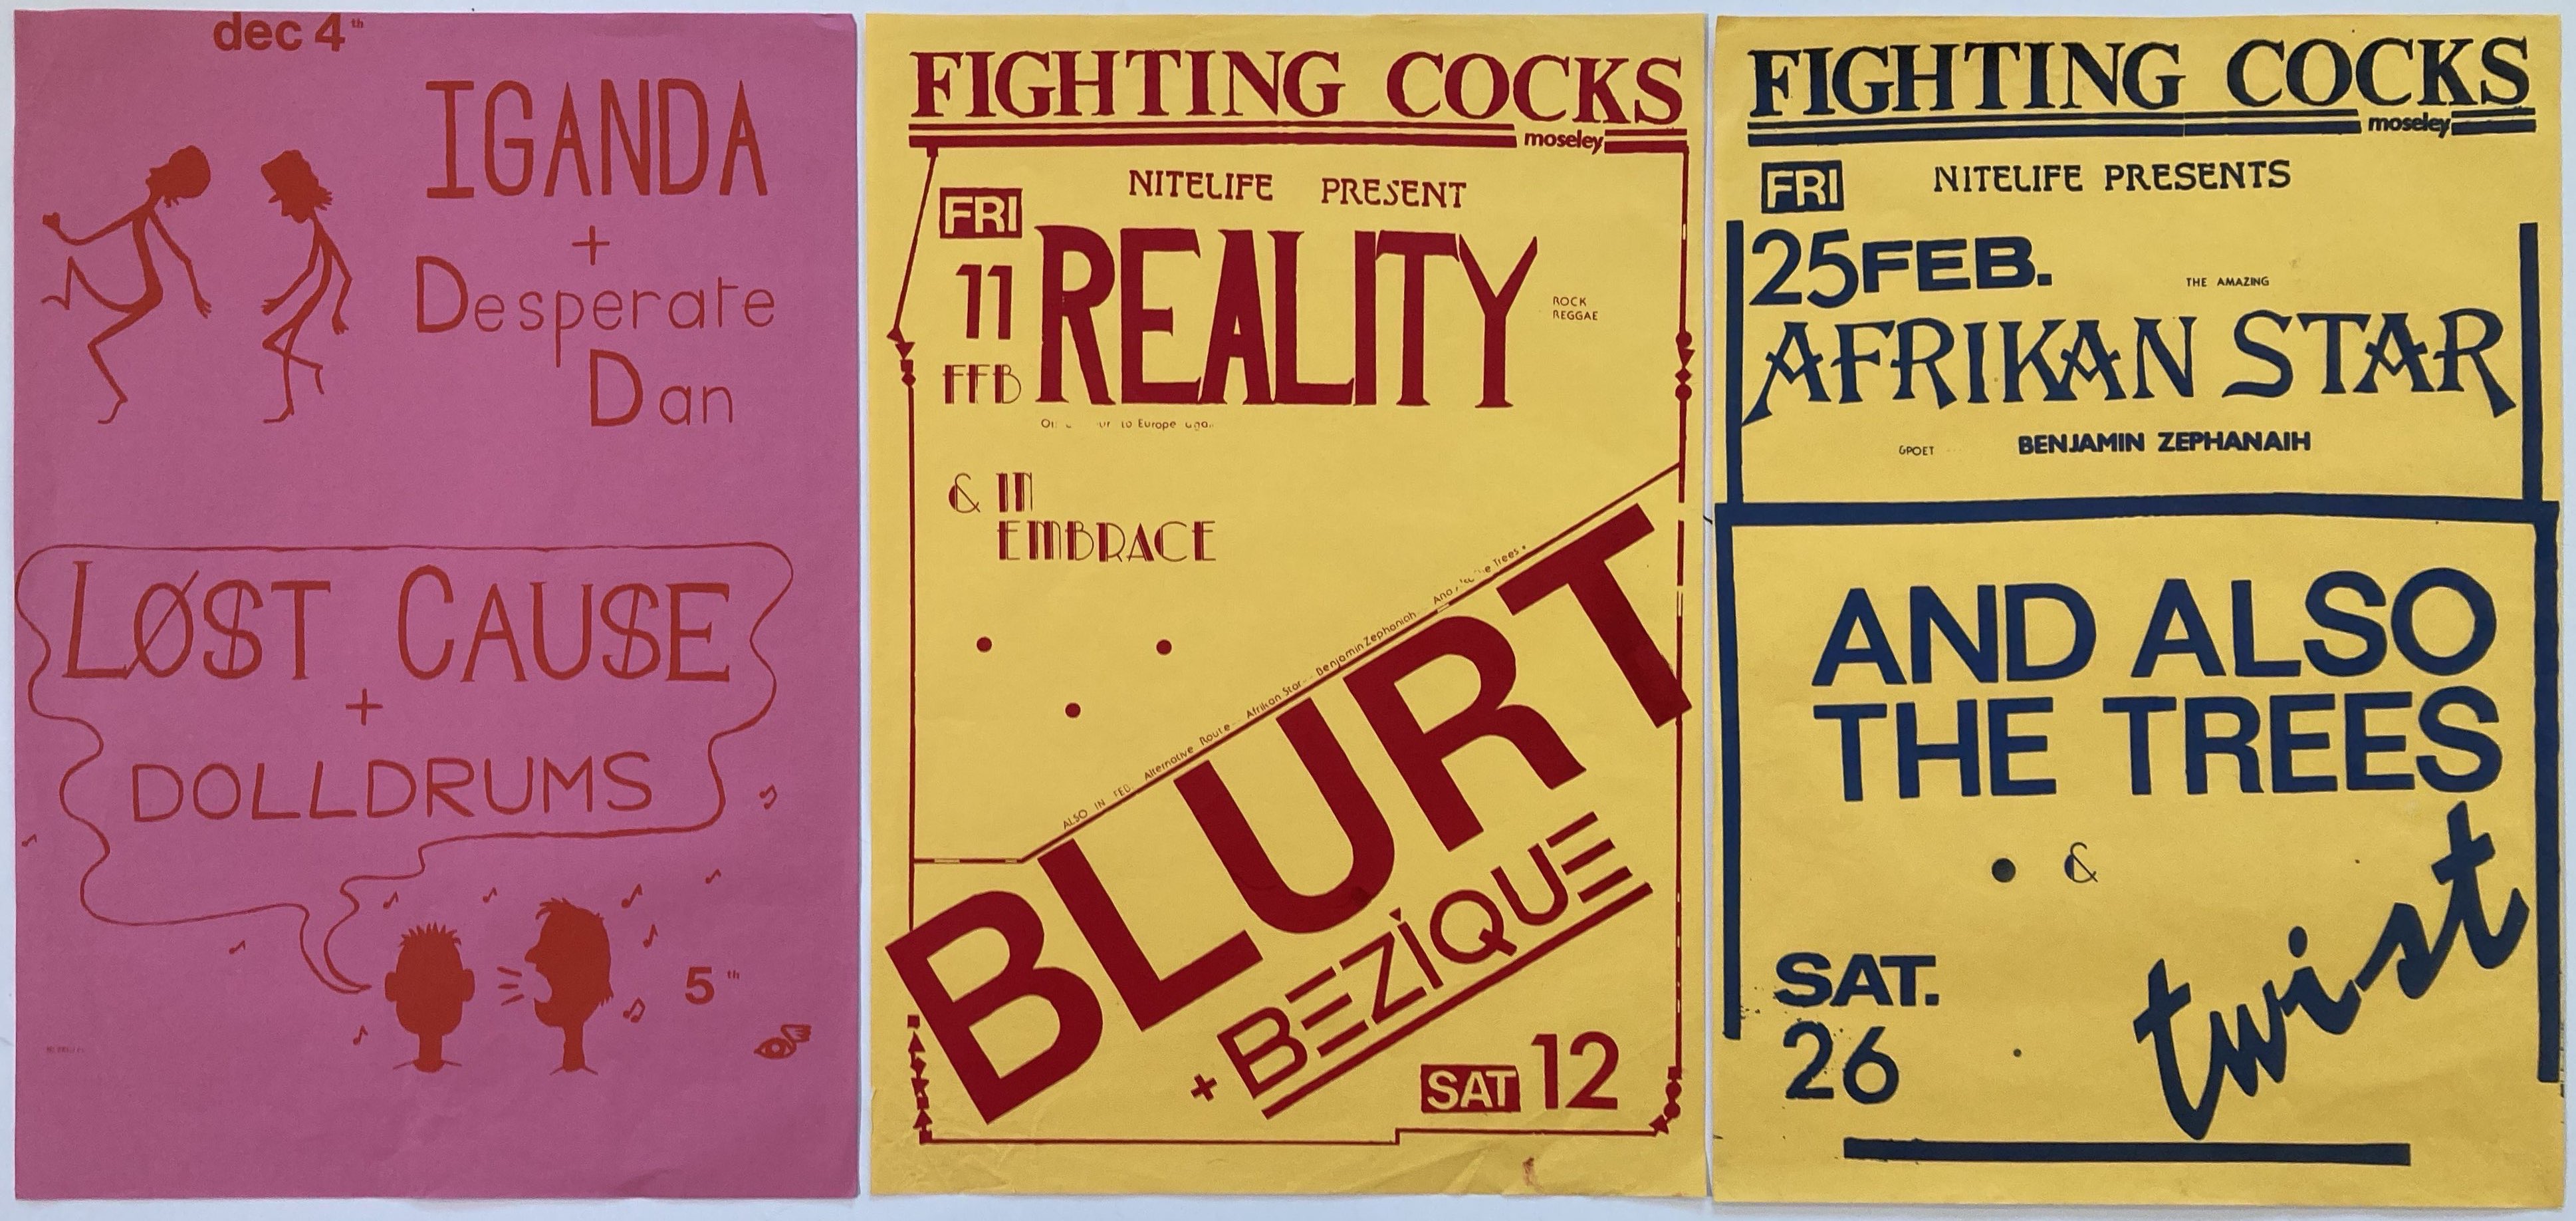 dec 4th
IGANDA
+
Desperate
Dan
LØ$T CAU$E
+
DOLLDRUMS
5th
FIGHTING COCKS
moseley
NITELIFE PRESENT
FRI
11
FEB
REALITY
ROCK
REGGAE
to Europe
& IN
EMBRACE
ALSO IN FEB. Alternative Route - Afrikan Star - Benjamin Zephaniah And Also The Trees
BLURT
+ BEZIQUE
SAT 12
FIGHTING COCKS
moseley
FRI
NITELIFE PRESENTS
25 FEB.
THE AMAZING
AFRIKAN STAR
&POET BENJAMIN ZEPHANAIH
AND ALSO
THE TREES
&
twist
SAT.
26